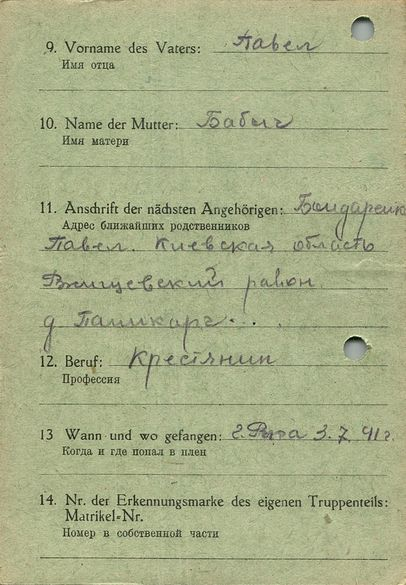 9. Vorname des Vaters: Павел
Имя отца
10. Name der Mutter: Бабыч
Имя матери
11. Anschrift der nächsten Angehörigen: Бондаренко
Адрес ближайших родственников
Павел. Киевская область
район.
д
12. Beruf: Крестянин
Профессия
13 Wann und wo gefangen: 3.7.41г.
Когда и где попал в плен
14. Nr. der Erkennungsmarke des eigenen Truppenteils:
Matrikel-Nr.
Номер в собственной части